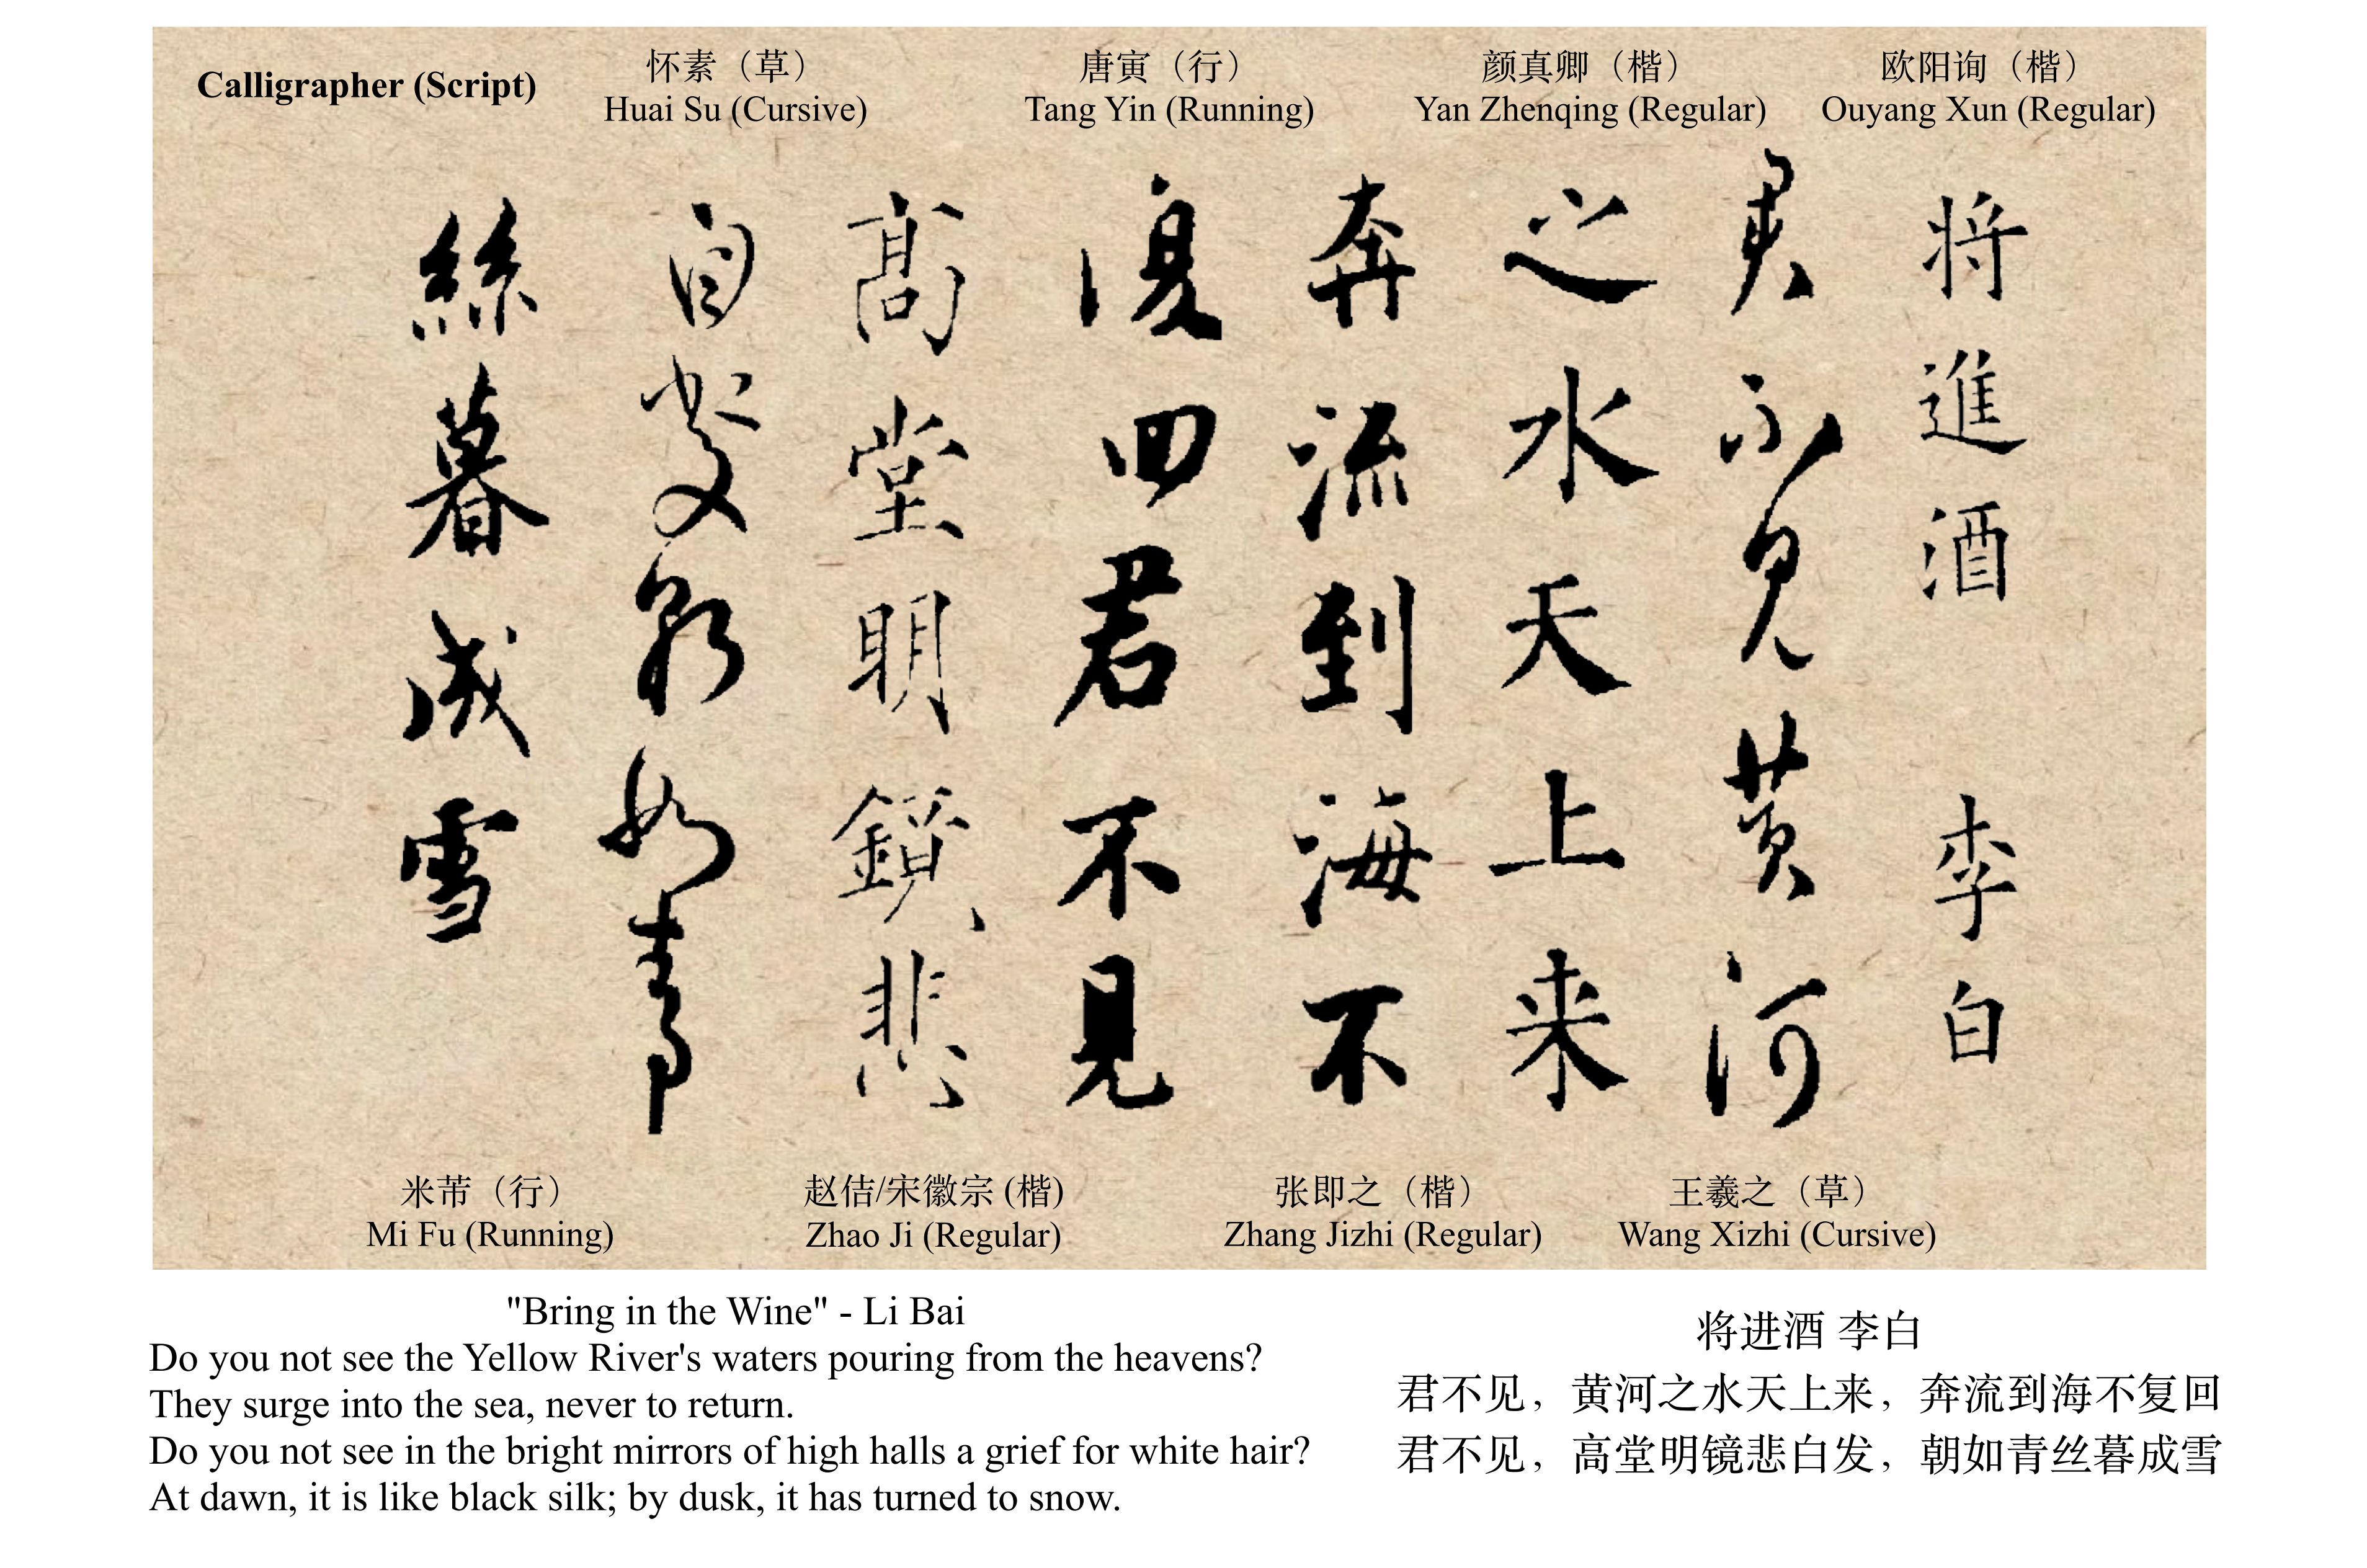 Calligrapher (Script)
怀素（草）
Huai Su (Cursive)
唐寅（行）
Tang Yin (Running)
颜真卿（楷）
Yan Zhenqing (Regular)
欧阳询（楷）
Ouyang Xun (Regular)
将進酒 李白
君不見黄河
之水天上来
奔流到海不
復回君不見
高堂明鏡悲
白髮朝如青
絲暮成雪
米芾（行）
Mi Fu (Running)
赵佶/宋徽宗 (楷)
Zhao Ji (Regular)
张即之（楷）
Zhang Jizhi (Regular)
王羲之（草）
Wang Xizhi (Cursive)
"Bring in the Wine" - Li Bai
Do you not see the Yellow River's waters pouring from the heavens?
They surge into the sea, never to return.
Do you not see in the bright mirrors of high halls a grief for white hair?
At dawn, it is like black silk; by dusk, it has turned to snow.
将进酒 李白
君不见，黄河之水天上来，奔流到海不复回
君不见，高堂明镜悲白发，朝如青丝暮成雪